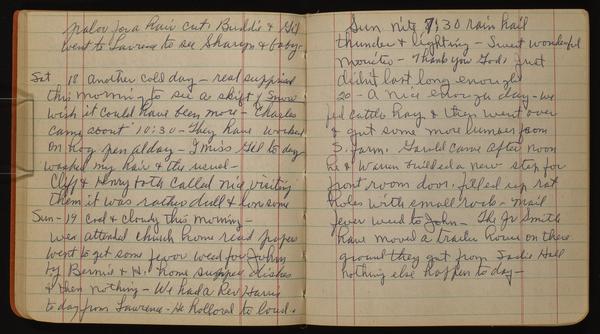 parlor for a hair cut. Buddie & Gil
went to Lawrence to see Sharyn & baby
Sat 18 another cold day – real supprised
this morning to see a skift of Snow
wish it could have been more – Charles
came about 10:30 – They have worked
on hog pen alday – I miss Gil to day
washed my hair & the usual –
Cliff & Henry both called nice visiting
them it was rather dull & lonsome
Sun – 19 cool & cloudy this morning –
were attended church home read paper
went to get some fever weed for John
by Bernie & H. home supper dishes
& then nothing – We had a Rev Harris
to day from Lawrence – He hollored to loud.
Sun nite 7:30 rain hail
thunder & lighting – Sweet wonderful
moisture – Thank you God. Just
didn't last long enough
20 – A nice enough day – we
fed cattle hay & then went over
& got some more lumber from
S. farm. Gerald came after noon
he & Warren builded a new step for
front room door. filled up rat
holes with small rock – mail
fever weed to John – The Jr Smith
have moved a trailer house on there
ground they got from Sadie Hall
nothing else happen to day –